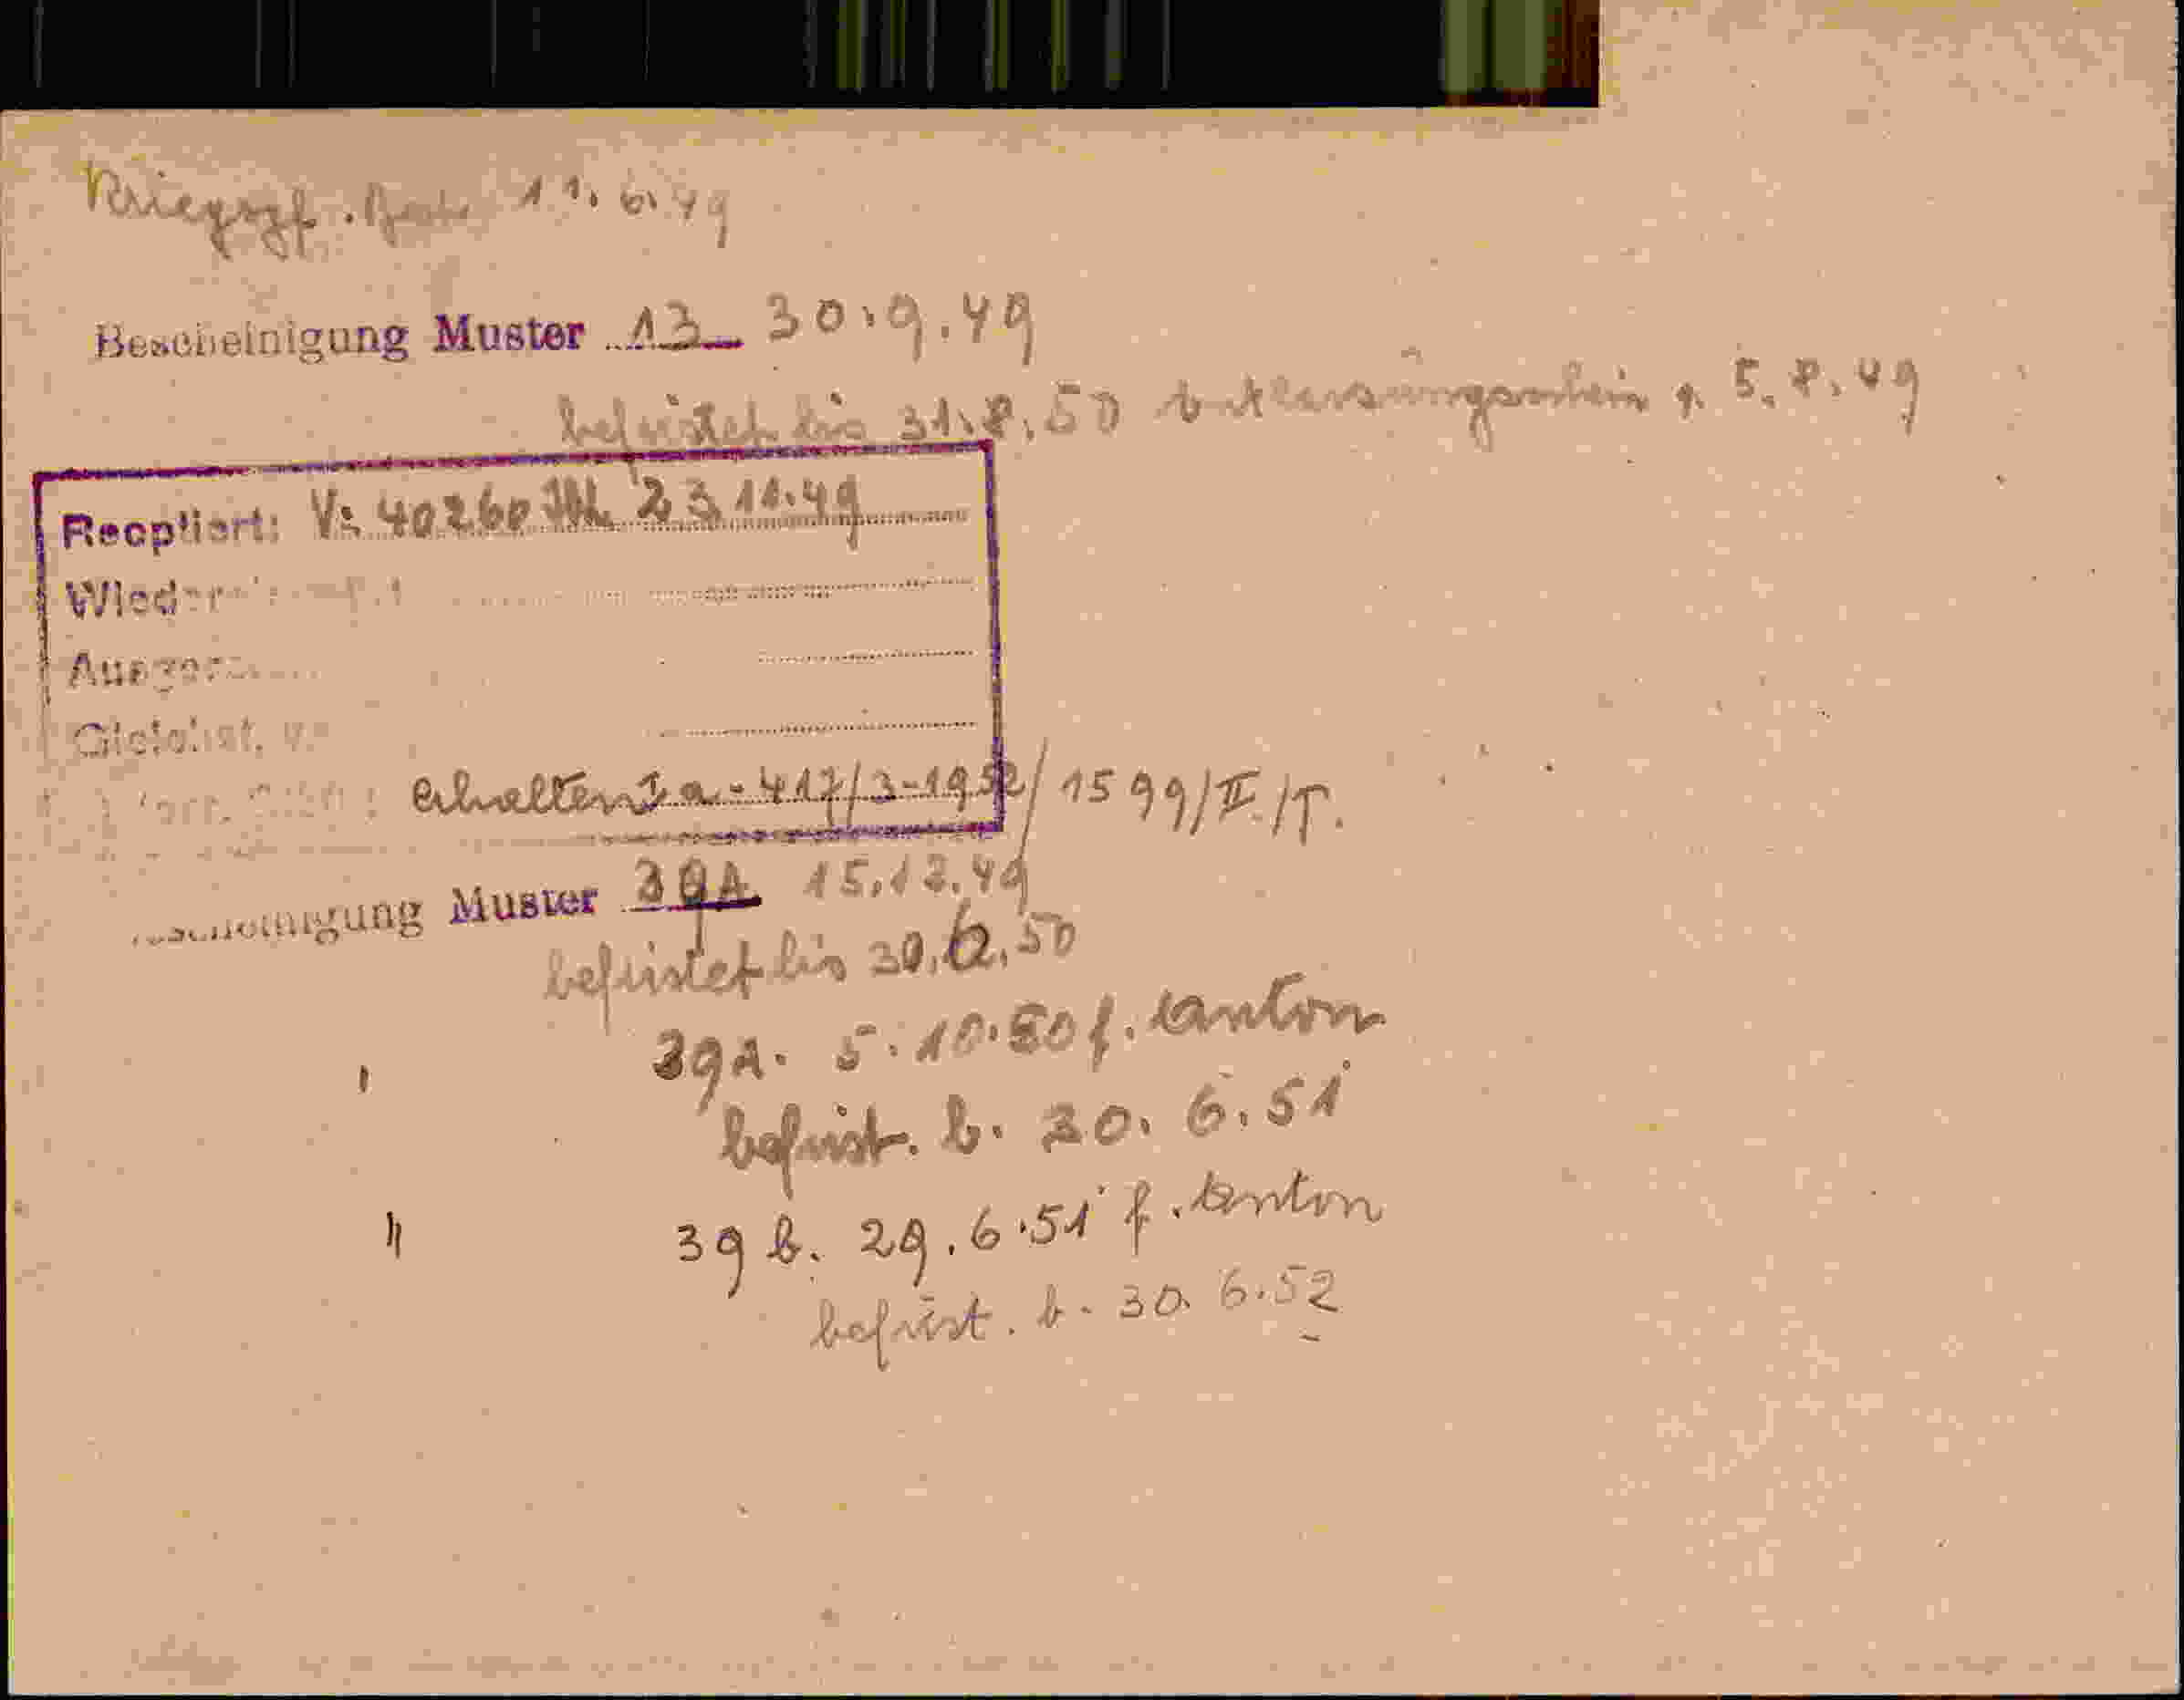 Kriegsgf. 11.6.49
Bescheinigung Muster 13 30.9.49
befristet bis 31.8.50 Entlassungsschein v. 5.8.49
Reoptiert: V: 40260 23.11.49
erhalten Ia-417/3-1952/1599/II./T.
Bescheinigung Muster 39A 15.12.49
befristet bis 30.6.50
" 39A. 5.10.50 f. Anton
befrist. b. 30.6.51
" 39 b. 29.6.51 f. Anton
befrist. b. 30.6.52